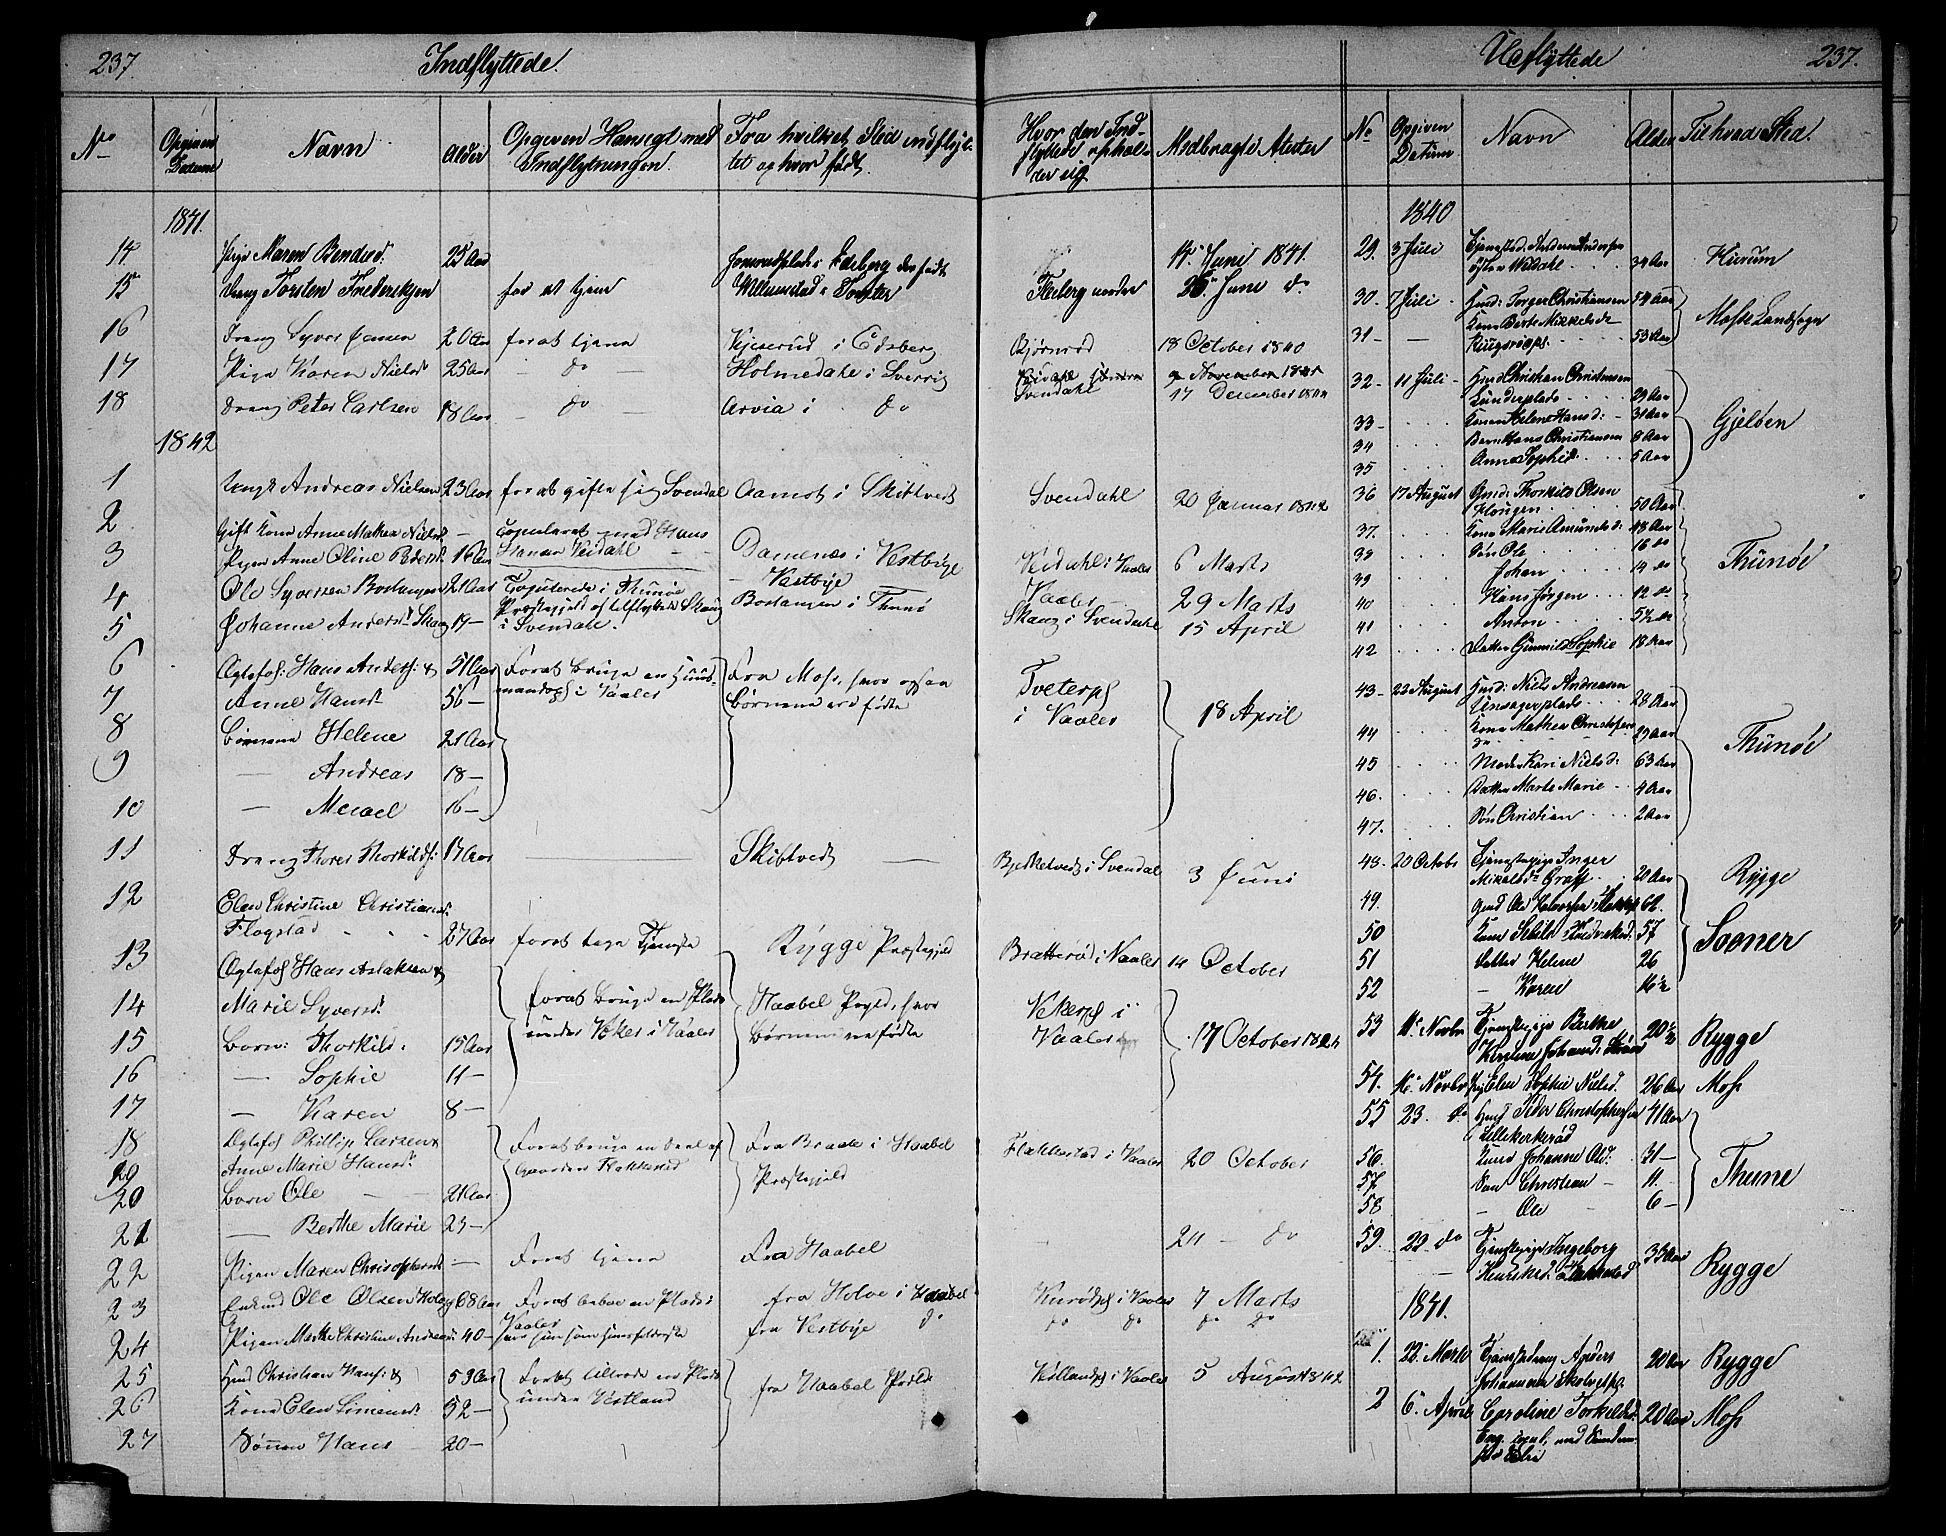 237. Indflyttede.
No Opgiven Datum Navn Alder Opgiven Hensegt med Indflytningen. Fra hvilket Sted indflyttet og hvor født. Hvor den Indflyttede opholder sig Medbragte Atester
1841.
14 Pige Maren Bendsd. 25 Aar Edsberg der født 14 Juni 1841.
15 Dreng Torsten Frederiksen for at tjene Fleberg nordre 26 Juni do
16 Dreng Syver Jensen 20 Aar for at tjene Kjeserud i Edsberg Bjørnrød 18 October 1840
17 Pige Karen Nielsd 25 Aar — do — Holmedahl i Sverrig
18 Dreng Peter Carlsen 18 Aar — do — Arvia i do Svendahl 17 December
1842
1 Ungk Andreas Nielsen 23 Aar for at gifte sig Svendal Aamot i Skibtvedt Svendahl 20 Januar 1842
2 Gift Kone Anne Mathea Nielsd — Copuleret med Hans
3 Pigen Anne Oline Pedersd. 16 Aar Hansen Veidahl Damenæs i Vestbye Veidahl i Vaaler 6 Marts
4 Ole Syversen Boslangen 21 Aar Copulerede i Thunøe Vestbye Vaaler 29 Marts
5 Johanne Andersd. Skaug 19 — Præstegjeld i Svendahl. Boslangen i Thunø Skaug i Svendahl 15 April
6 Ægtefos: Hans Anders: & 51 Aar For at bruge en Huusmandspl i Vaaler Fra Moss, hvor ogsaa Børnene ere fødte Tveterpl i Vaaler 18 April
7 Anne Hansd. 56 —
8 Børnene Helene 21 Aar
9 — Andreas 18 —
10 — Micael 16 —
11 Dreng Thores Thorkilds: 17 Aar — Skibtvedt — Bjerketvedt i Svendal 3 Juni
12 Elen Christine Christiansd. Flagstad 27 Aar for at tage Tjeneste Rygge Præstegjeld Bratterød i Vaaler 14 October
13 Ægtefos Hans Aslaksen & for at bruge en Plads under Veker i Vaaler Haabel Prgld, hvor Børnene ere fødte Vekerpl i Vaaler 17 October 1842
14 Marie Syversd.
15 Born: Thorkild: 15 Aar
16 — Sophie 11 —
17 — Karen 8 —
18 Ægtefos Phillip Larsen & For at bruge en Deel af Gaarden Flakkerud Fra Braate i Haabel Præstegjeld Flakkestad i Vaaler 20 October
20 Anne Marie Hansd.
20 Born Ole — — 21 Aar
21 — Berthe Marie 23 — 24 — do
22 Pigen Maren Christophersd. — For at tjene Fra Haabel
23 Ole Olsen Holve 68 Aar For at beboe en Plads i Vaaler fra Holve i Haabel Kurødpl i Vaaler 7 Marts
24 Pigen Marthe Christine Andreasd. 40 — fra Vestbye do do do do
25 Hmd Christian Hans: & 59 Aar For at tiltræde en Plads under Vestland fra Haabel Prgld Vestlandpl i Vaaler 5 August 1842
26 Kone Elen Simensd. 52 —
27 Sønnen Hans 20 —
Udflyttede 237.
No Opgiven Datum Navn Alder Til hvad Sted.
1840
29. 3 Juli Tjenestd. Anders Andersen østre Weidahl 34 Aar Kurum
30. 7 Juli Hmd: Torger Christiansen 54 Aar Mosse Landsogn
31 — — Kone Berte Mikkelsdr Kingsrødpl. 53 Aar
32 — 11 Juli — Hmd Christian Christensen Lunderplads 29 Aar Gjelsen
33 — Konen Helene Hansd: 31 Aar
34 Barn Hans Christiansen 8 Aar
35 Anne Sophie 5 Aar
36 17 August Gmd: Thorkild Olsen Plongen 50 Aar Thunøe
37. Kone Marie Amundsd: 48 Aar
38 Søn Ole 16 do
39 Johan 14 do
40 Hans Jørgen 12 do
41 Anton 5½ do
42 Datter Gunnild Sophie 18 Aar
43 — 22 August Hmd: Niels Andreasen Unsagerplads 28 Aar Thunøe
44 Kone Mathea Christophersdr 29 Aar
45 Moder Kari Nielsd: 63 Aar
46. Datter Marte Marie 4 Aar
47. Søn Christian 2 Aar
48. 20 Octobr Tjenestepige Inger Mikalsdr Graff 20 Aar Rygge
49. Gmd Ole Halvorsen 62. Sooner
50 Kone Sibile 57
51 Datter Helene 26
52 — Karen 16½
53 Novbr Tjenestepige Berthe Kirstine Johannesd: 20½ Rygge
54. 16 Novbr Pig Elen Sophie Nielsd. 26 Aar Moss
55 23. do Hmd Peder Christophersen Lillekerkerød 41 Aar Thune
56. Kone Johanne Olsd. 31 —
57 Søn Christian — 11.
58 — Ole 6 —
59. 29 do Tjenestepige Ingeborg Henriksd. Flakkestad 33 Aar Rygge
1841.
1. 22. Marts Tjenestedreng Anders Johannesen 20 Aar Rygge
2 6. April Caroline Torkildsd. 20 Aar Moss